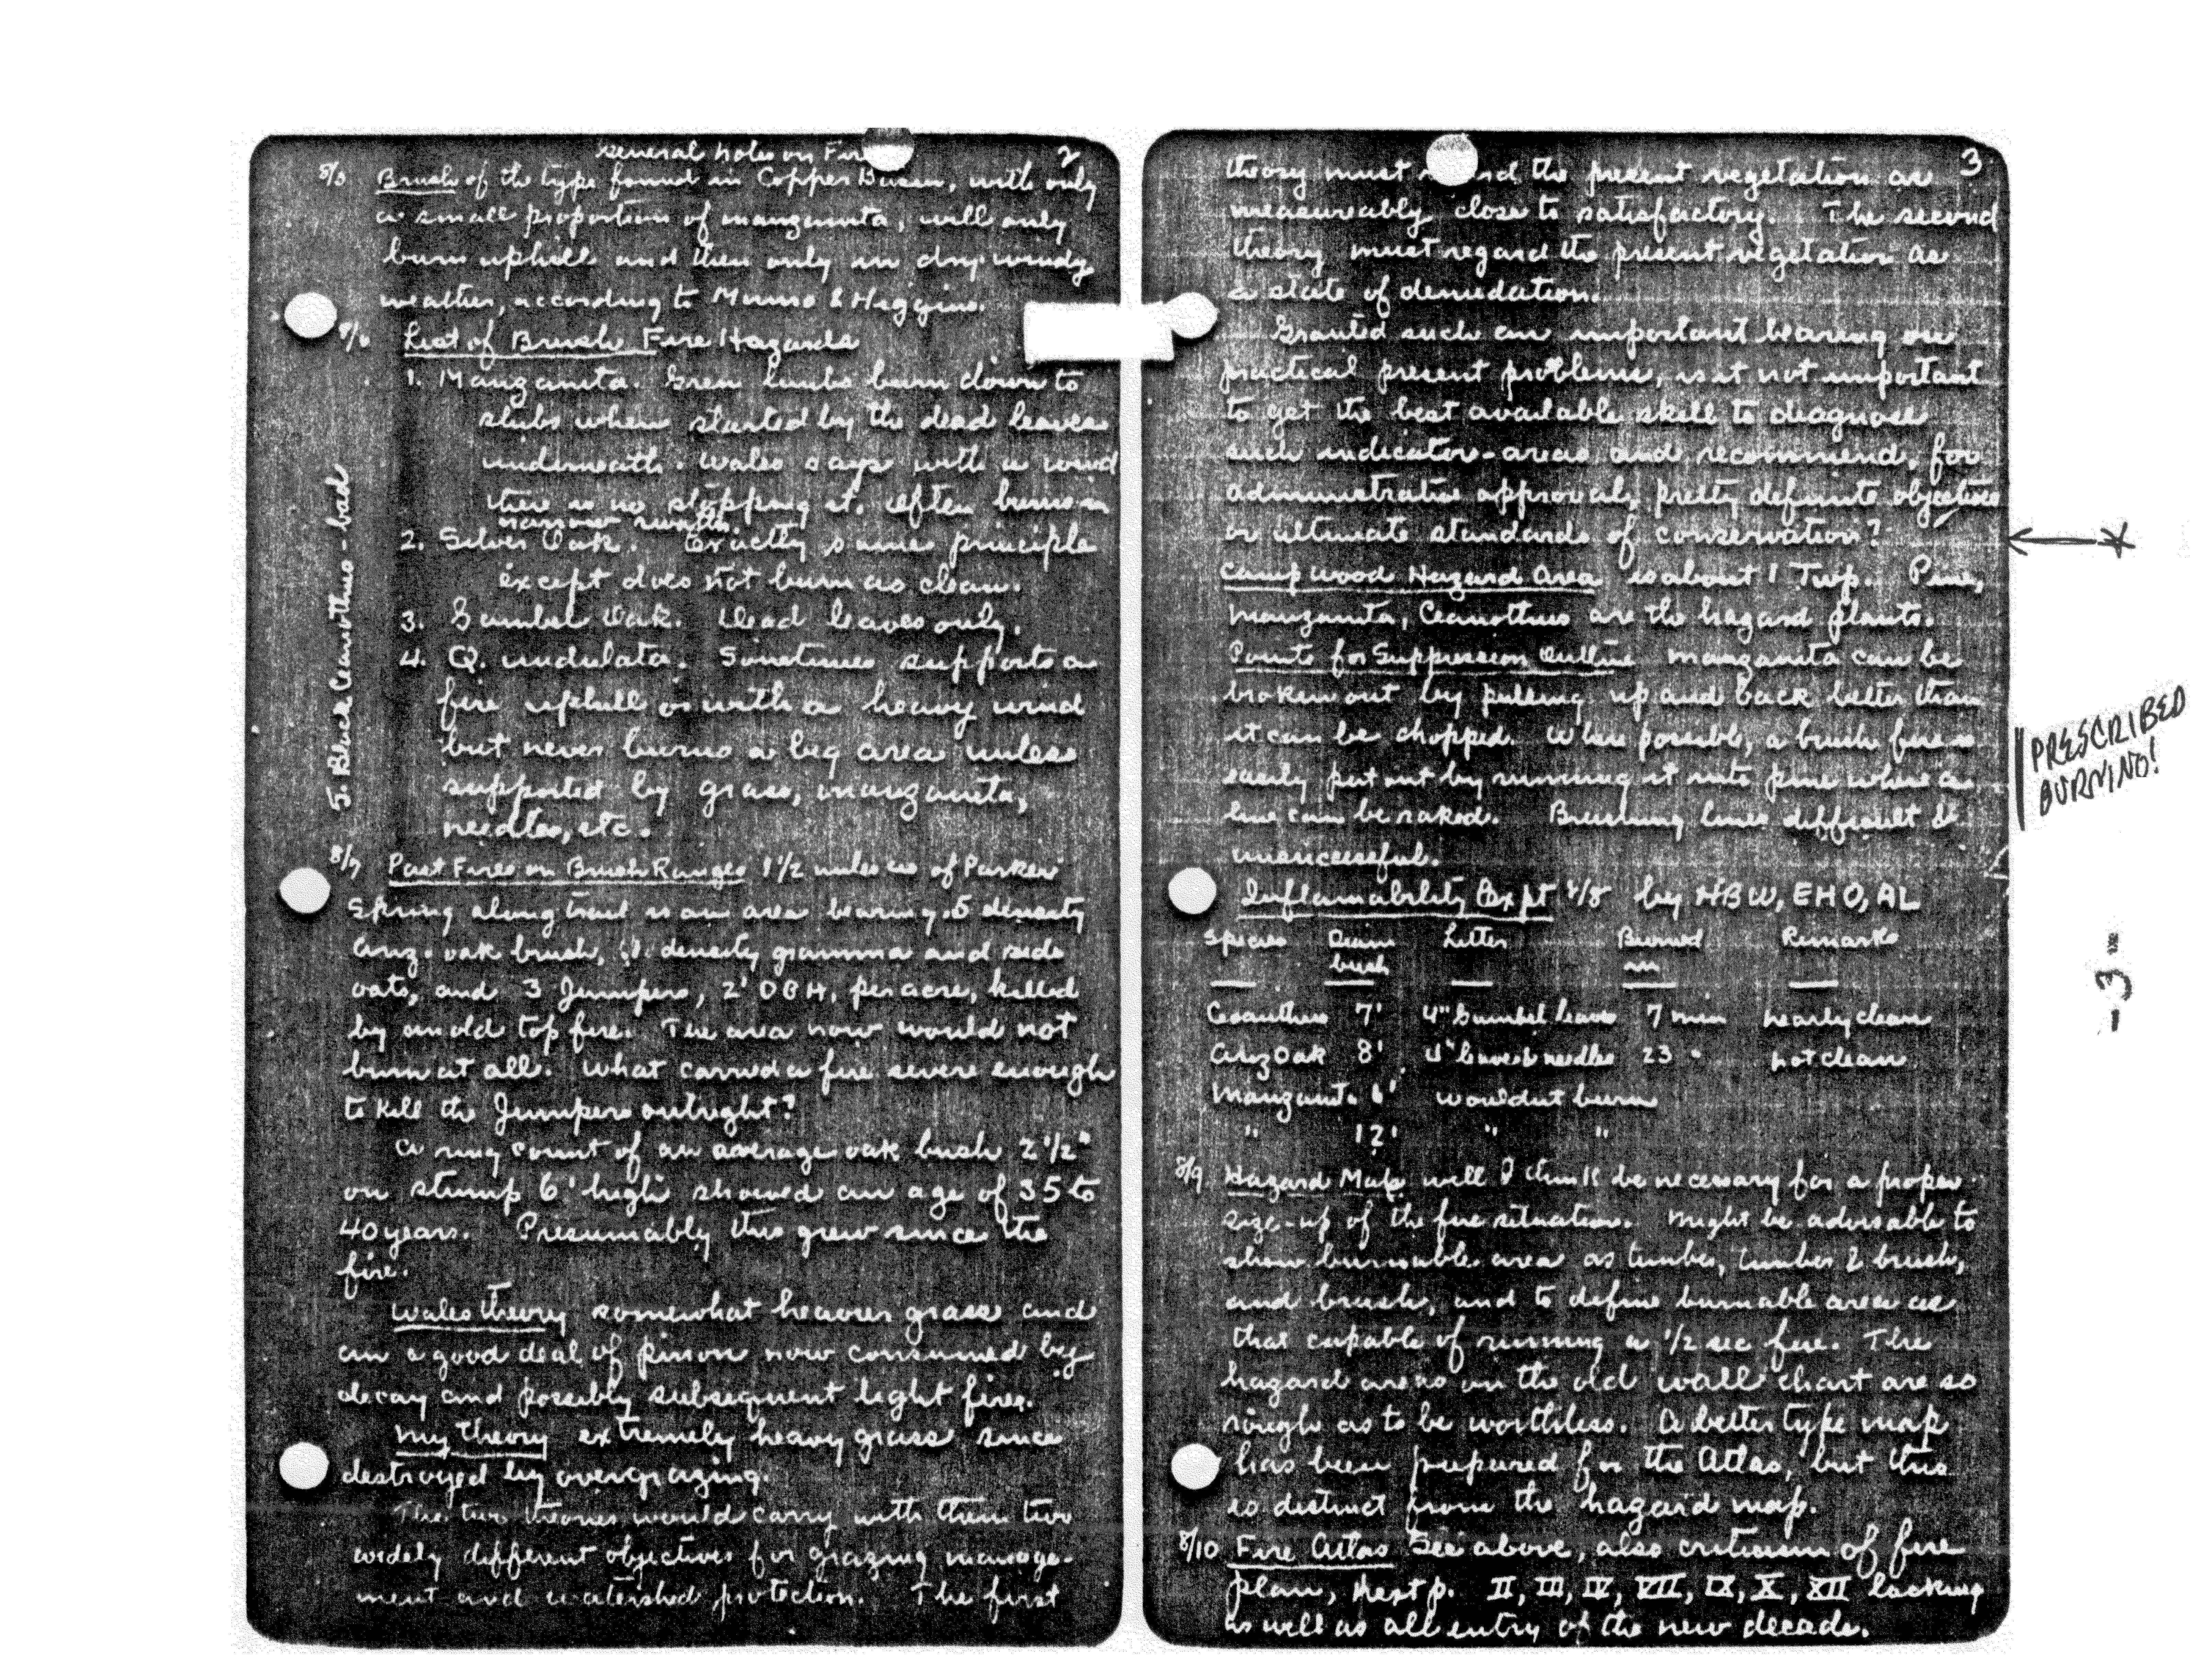 General Notes on Fire 2
8/5 Brush of the type found in Copper Basin, with only
a small proportion of manzanita, will only
burn uphill and then only in dry windy
weather, according to Munro & Higgins.
8/6 List of Brush Fire Hazards
1. Manzanita. Green limbs burn down to
stubs when started by the dead leaves
underneath. Wales says with a wind
there is no stopping it. Often burns in
narrow swaths.
2. Silver Oak. Exactly same principle
except does not burn as clean.
3. Gambel Oak. Dead leaves only.
4. Q. undulata. Sometimes supports a
fire uphill or with a heavy wind
but never burns a big area unless
supported by grass, manzanita,
needles, etc.
5. Black Ceanothus - bad
8/7 Past Fires on Brush Ranges 1 1/2 miles W of Parker
Spring along trail is an area bearing .5 density
Ariz. oak brush, .1 density gramma and side
oats, and 3 Junipers, 2' DBH, per acre, killed
by an old top fire. The area now would not
burn at all. What carried a fire severe enough
to kill the Junipers outright?
A ring count of an average oak bush 2 1/2"
on stump 6' high showed an age of 35 to
40 years. Presumably this grew since the
fire.
Wales theory somewhat heavier grass and
a good deal of pinon now consumed by
decay and possibly subsequent light fires.
My theory extremely heavy grass since
destroyed by overgrazing.
The two theories would carry with them two
widely different objectives for grazing manage-
ment and watershed protection. The first
3
theory must the present vegetation as
measureably close to satisfactory. The second
theory must regard the present vegetation as
a state of denudation.
Granted such an important bearing on
practical present problems, is it not important
to get the best available skill to diagnose
such indicator-areas and recommend, for
administrative approval, pretty definite objectives
or ultimate standards of conservation?
Camp Wood Hazard Area is about 1 Twp. Pine,
Manzanita, Ceanothus are the hazard plants.
Points for Suppression Outline Manzanita can be
broken out by pulling up and back better than
it can be chopped. When possible, a brush fire is
easily put out by running it into pine where a
line can be raked. Brushing lines difficult &
unsuccessful.
PRESCRIBED
BURNING!
Inflamability Expt 8/8 by HBW, EHO, AL
Species Diam bush Litter Burned in Remarks
Ceanothus 7' 4" Gambel leaves 7 min nearly clean
Ariz Oak 8' 4" leaves & needles 23 " not clean
Manzanit. 6' wouldnt burn
" 12' " "
8/9 Hazard Map will I think be necessary for a proper
size-up of the fire situation. Might be advisable to
show burnable area as timber, timber & brush,
and brush, and to define burnable area as
that capable of running a 1/2 sec fire. The
hazard areas on the old wall chart are so
rough as to be worthless. A better type map
has been prepared for the Atlas, but this
is distinct from the hazard map.
8/10 Fire Atlas See above, also criticism of fire
plan, next p. II, III, IV, VII, IX, X, XII lacking
as well as all entry of the new decade.
-3-